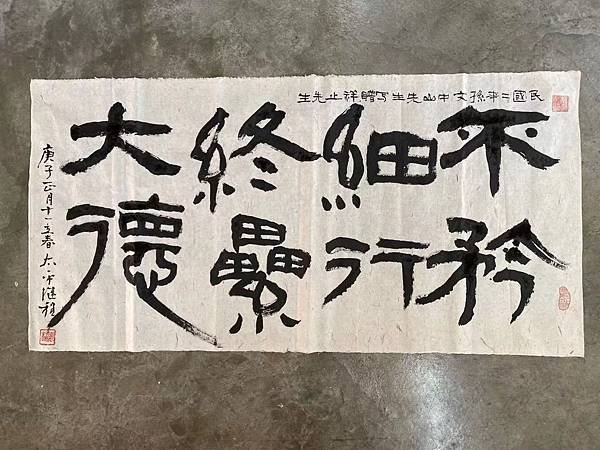 民國二年孫文中山先生写贈祥止先生
不矜
細行
終纍
大德
庚子正月十一立春 太平继程